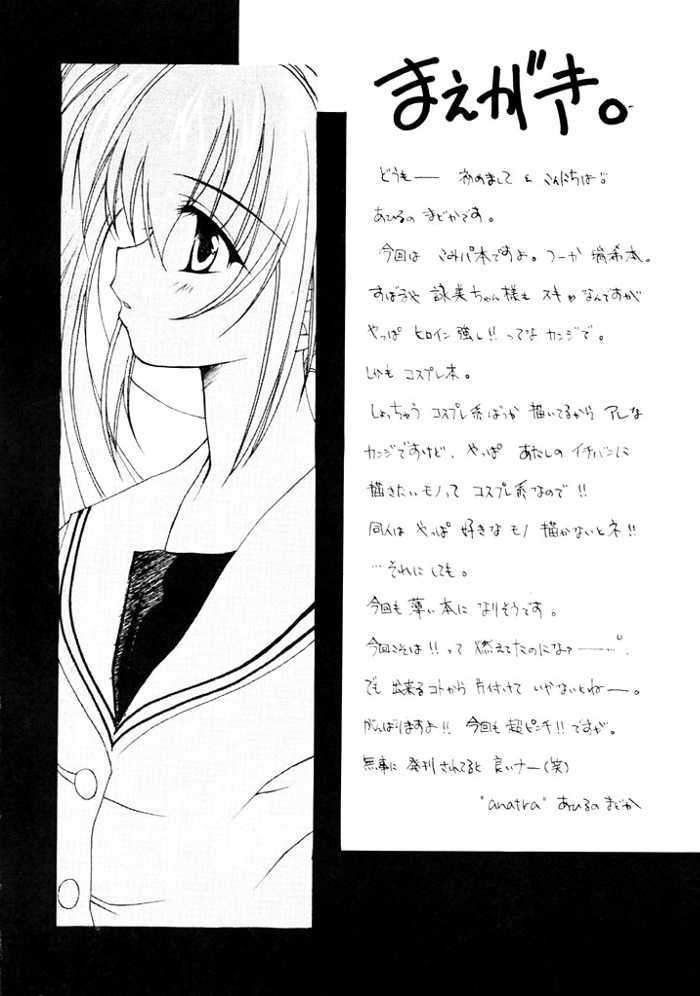 まえがき。
どうも──初めまして と こんにちは。
あひるの まどかです。
今回は こみパ本ですよ。つーか 瑞希本。
すばるや 詠美ちゃん様も スキ なんですが
やっぱ ヒロイン強し!! ってな カンジで。
しかも コスプレ本。
しょっちゅう コスプレ系ばっか 描いてるから アレな
カンジですけど、やっぱ あたしの イチバンに
描きたいモノって コスプレ系なので!!
同人は やっぱ 好きな モノ 描かないとネ!!
…それに しても。
今回も 薄い本に なりそうです。
今回こそは!! って 燃えてたのになァ──…。
でも 出来るコトから 片付けて いかないとねー。
がんばりますよ!! 今回も 超ピンチ!! ですが。
無事に 発刊されてると 良いナー(笑)
"anatra" あひるの まどか